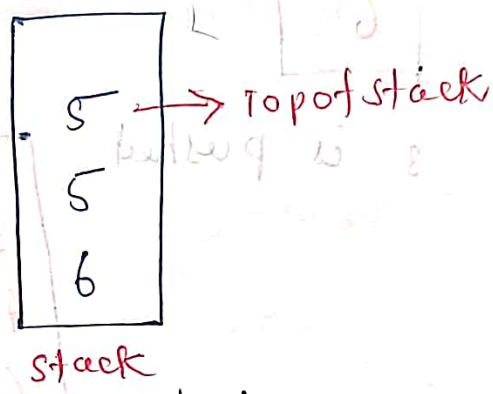 5 → Top of stack
5
6
stack